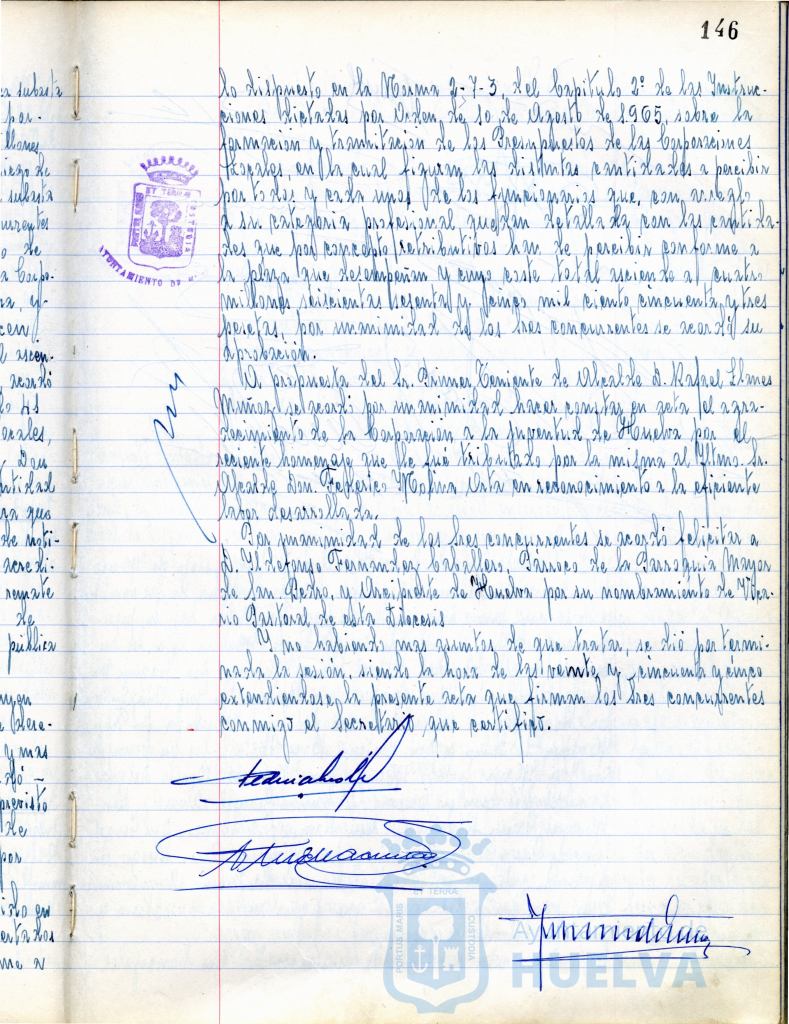 146
lo dispuesto en la Norma 2-7-3, del Capítulo 2º de las Instruc-
ciones dictadas por Orden de 10 de Agosto de 1965, sobre la
formación y tramitación de los Presupuestos de las Corporaciones
Locales, en la cual figuran las distintas cantidades a percibir
por todos y cada uno de los funcionarios que, con arreglo
a su categoria profesional quedan detallada con las cantida-
des que por concepto retributivos han de percibir conforme a
la plaza que desempeñan y cuyo coste total asciende a cuatro
millones seiscientas sesenta y cinco mil ciento cincuenta y tres
pesetas, por unanimidad de los tres concurrentes se acordó su
aprobación.
A propuesta del Sr. Primer Teniente de Alcalde D. Rafael Llanes
Muñoz, se acordó por unanimidad hacer constar en acta el agra-
decimiento de la Corporación a la juventud de Huelva por el
reciente homenaje que le fué tributado por la misma al Iltmo. Sr.
Alcalde Don. Federico Molina Orta en reconocimiento a la eficiente
labor desarrollada.
Por unanimidad de los tres concurrentes se acordó felicitar a
D. Ildefonso Fernandez Caballero, Párroco de la Parroquia Mayor
de San Pedro, y Arcipreste de Huelva por su nombramiento de Vica-
rio Pastoral de esta Diocesis
Y no habiendo mas asuntos de que tratar, se dió por termi-
nada la sesión, siendo la hora de las veinte y cincuenta y cinco
extendiendose la presente acta que firman los tres concurrentes
conmigo el Secretario que certifico.
ET TERRA
PORTUS MARIS
CUSTODIA
AYUNTAMIENTO DE
ET TERRA
PORTUS MARIS
CUSTODIA
Ayuntamiento de
HUELVA
subasta
por-
subasta
de
acordó
ocales,
Don
que
de noti-
acredi-
remate
de
pública
y mas
previsto
de
por